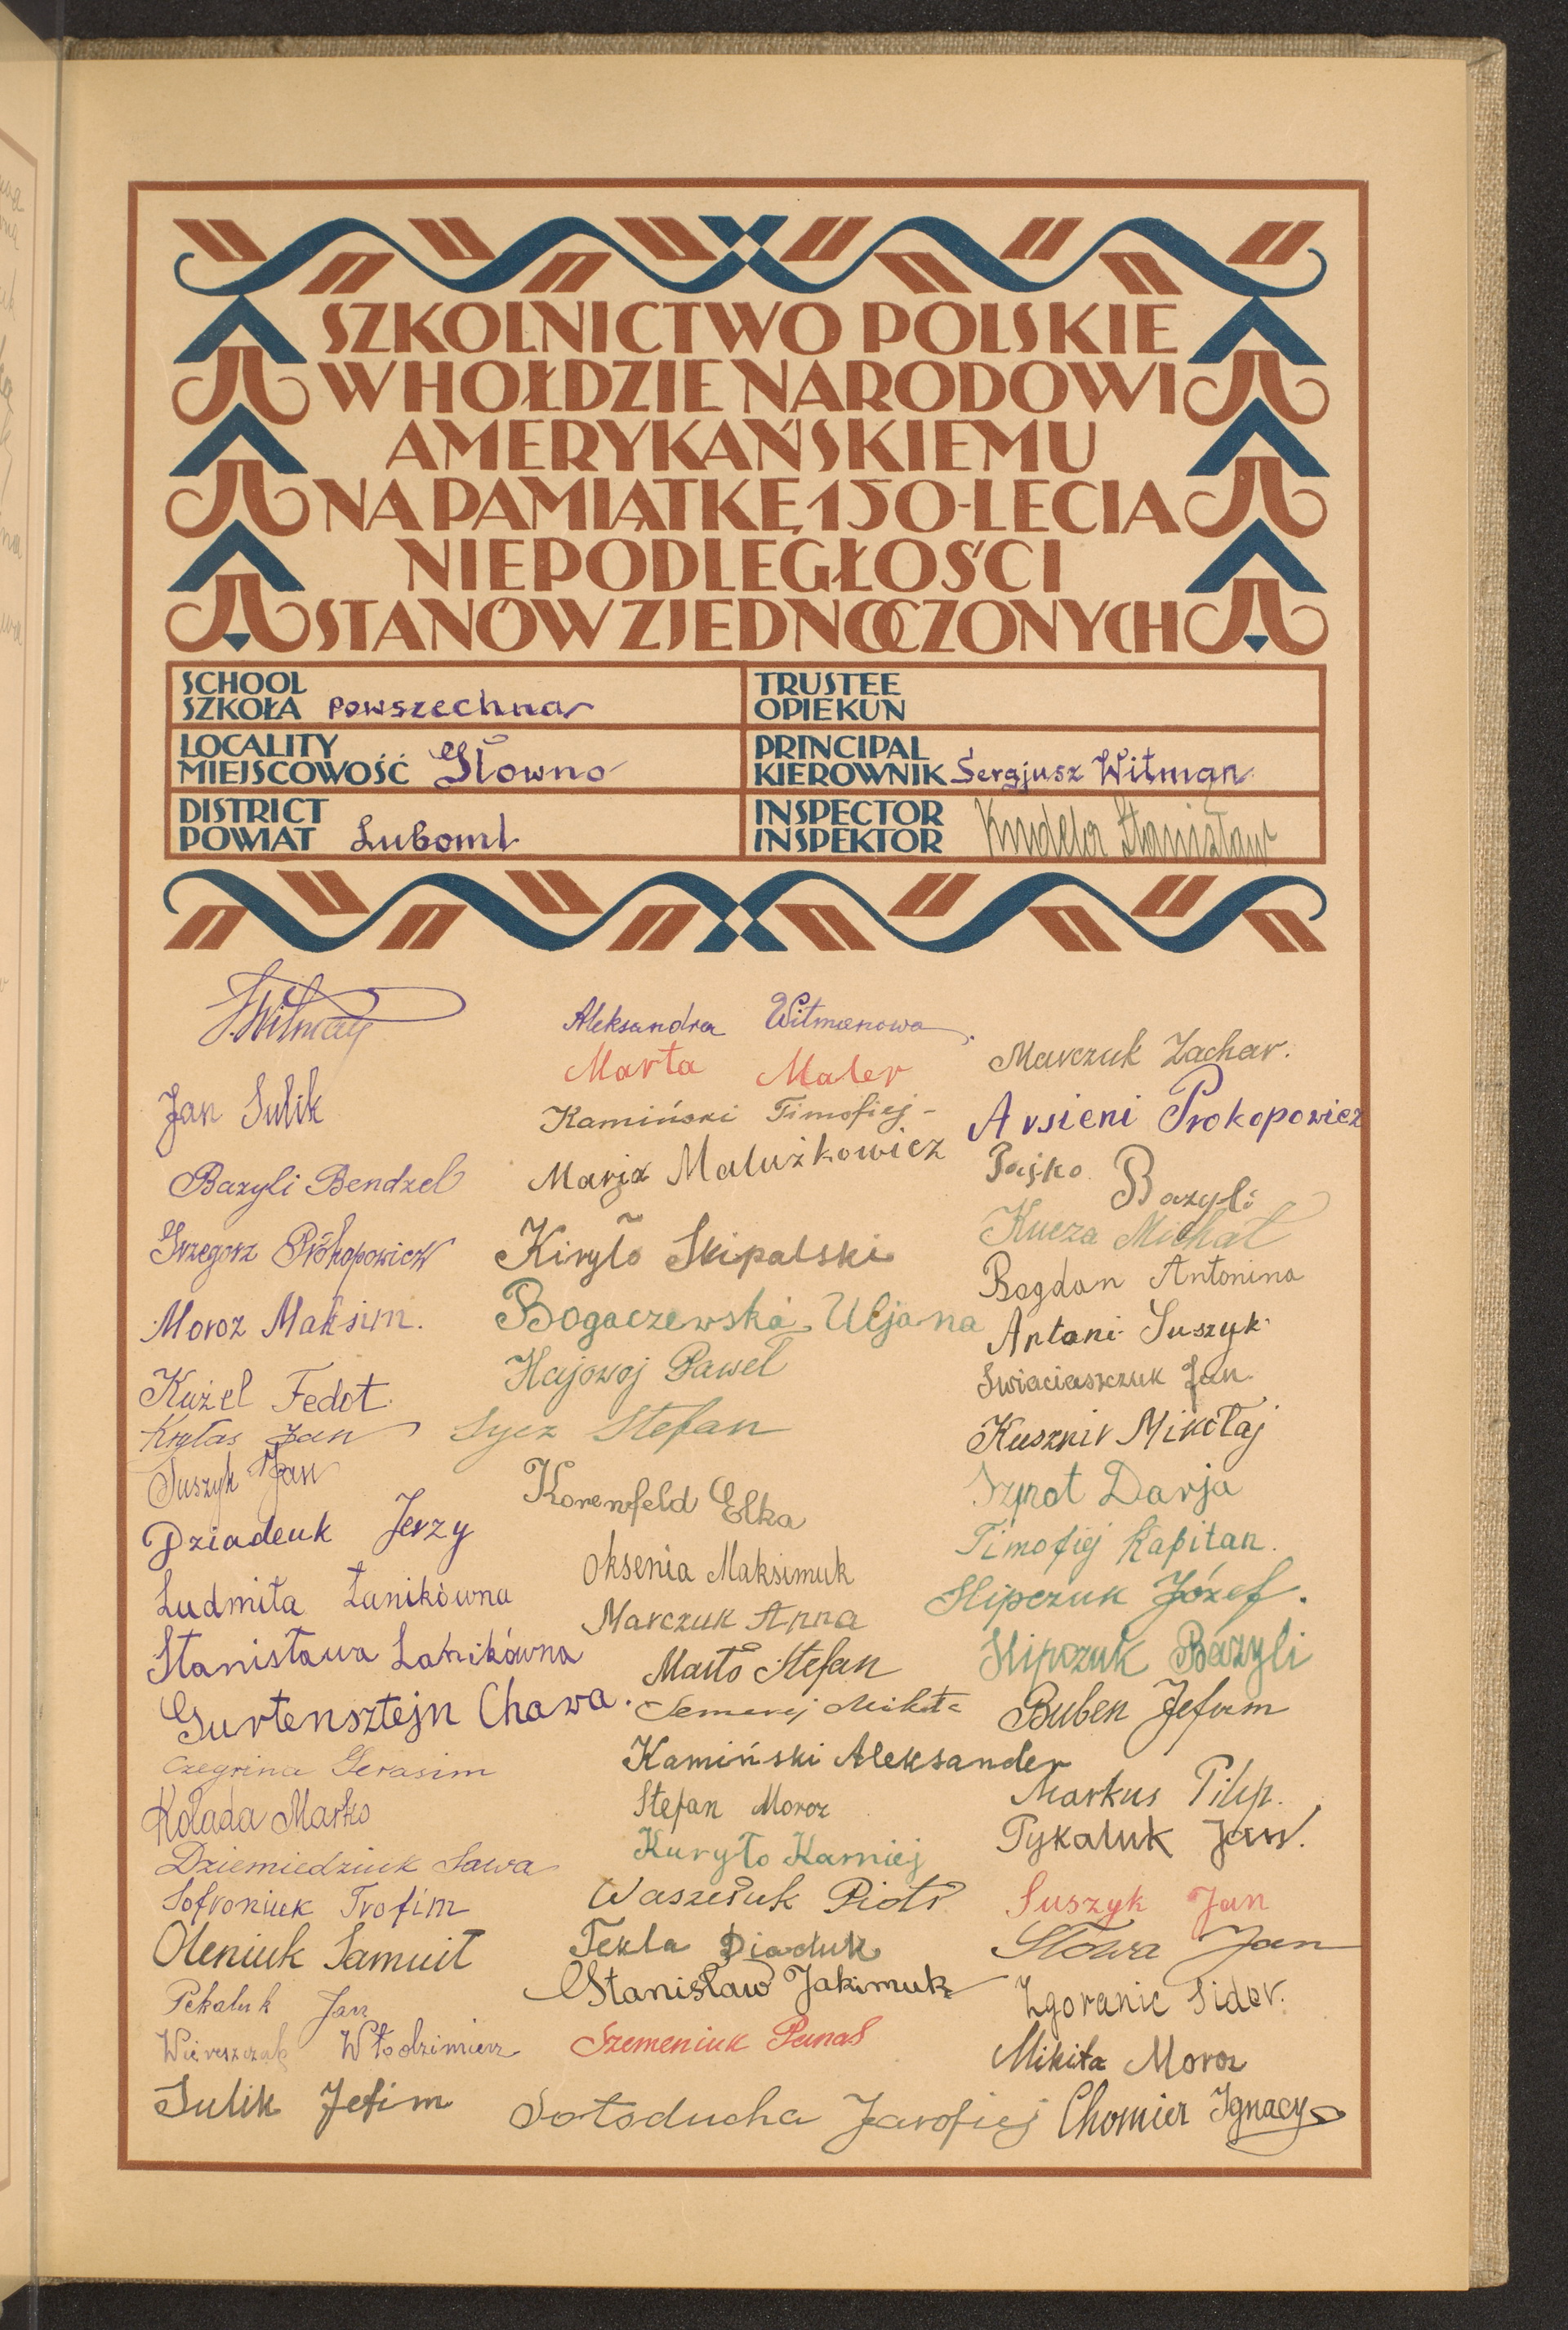 SZKOLNICTWO POLSKIE
W HOŁDZIE NARODOWI
AMERYKAŃSKIEMU
NA PAMIĄTKĘ 150-LECIA
NIEPODLEGŁOŚCI
STANÓW ZJEDNOCZONYCH
SCHOOL
SZKOŁA powszechna
TRUSTEE
OPIEKUN
LOCALITY
MIEJSCOWOŚĆ Słowno
PRINCIPAL
KIEROWNIK Sergjusz Witman
DISTRICT
POWIAT Luboml
INSPECTOR
INSPEKTOR Stanisław
S. Witman
Jan Sulik
Bazyli Bendzel
Grzegorz Prókopowicz
Moroz Maksim.
Kużel Fedot.
Krytas Jan
Suszyk Jan
Dziadeuk Jerzy
Ludmiła Łanikówna
Stanisława Łanikówna
Gurtensztejn Chawa.
Czegrina Gerasim
Kolada Marko
Dziemiedziuk Sawa
Sofroniuk Trofim
Oleniuk Samuił
Pekaluk Jan
Wiereszczak Włodzimierz
Sulik Jefim
Aleksandra Witmanowa.
Marta Maler
Kamiński Timofiej -
Marja Malużkowicz
Kiryło Skipalski
Bogaczewska Uljana
Hajowoj Paweł
Sycz Stefan
Korenfeld Elka
Oksenia Maksimuk
Marczuk Anna
Masło Stefan
Semerej Mikita
Kamiński Aleksander
Stefan Moroz
Kuryło Karniej
Waszeluk Piotr
Tekla Diaduk
Stanisław Jakimuk
Szemeniuk Panas
Sołoducha Jarofiej
Marczuk Zachar.
Arsieni Prokopowicz
Pajko Bazyli
Kucza Michał
Bogdan Antonina
Antoni Suszyk
Swiaciaszczuk Jan
Kusznir Mikołaj
Szpot Darja
Timofiej Kapitan.
Hipczuk Józef.
Hipczuk Bazyli
Buben Jefim
Markus Pilip.
Pykaluk Jan.
Suszyk Jan
Słowa Jan
Zgoranic Sidor.
Mikita Moroz
Chomicz Ignacy